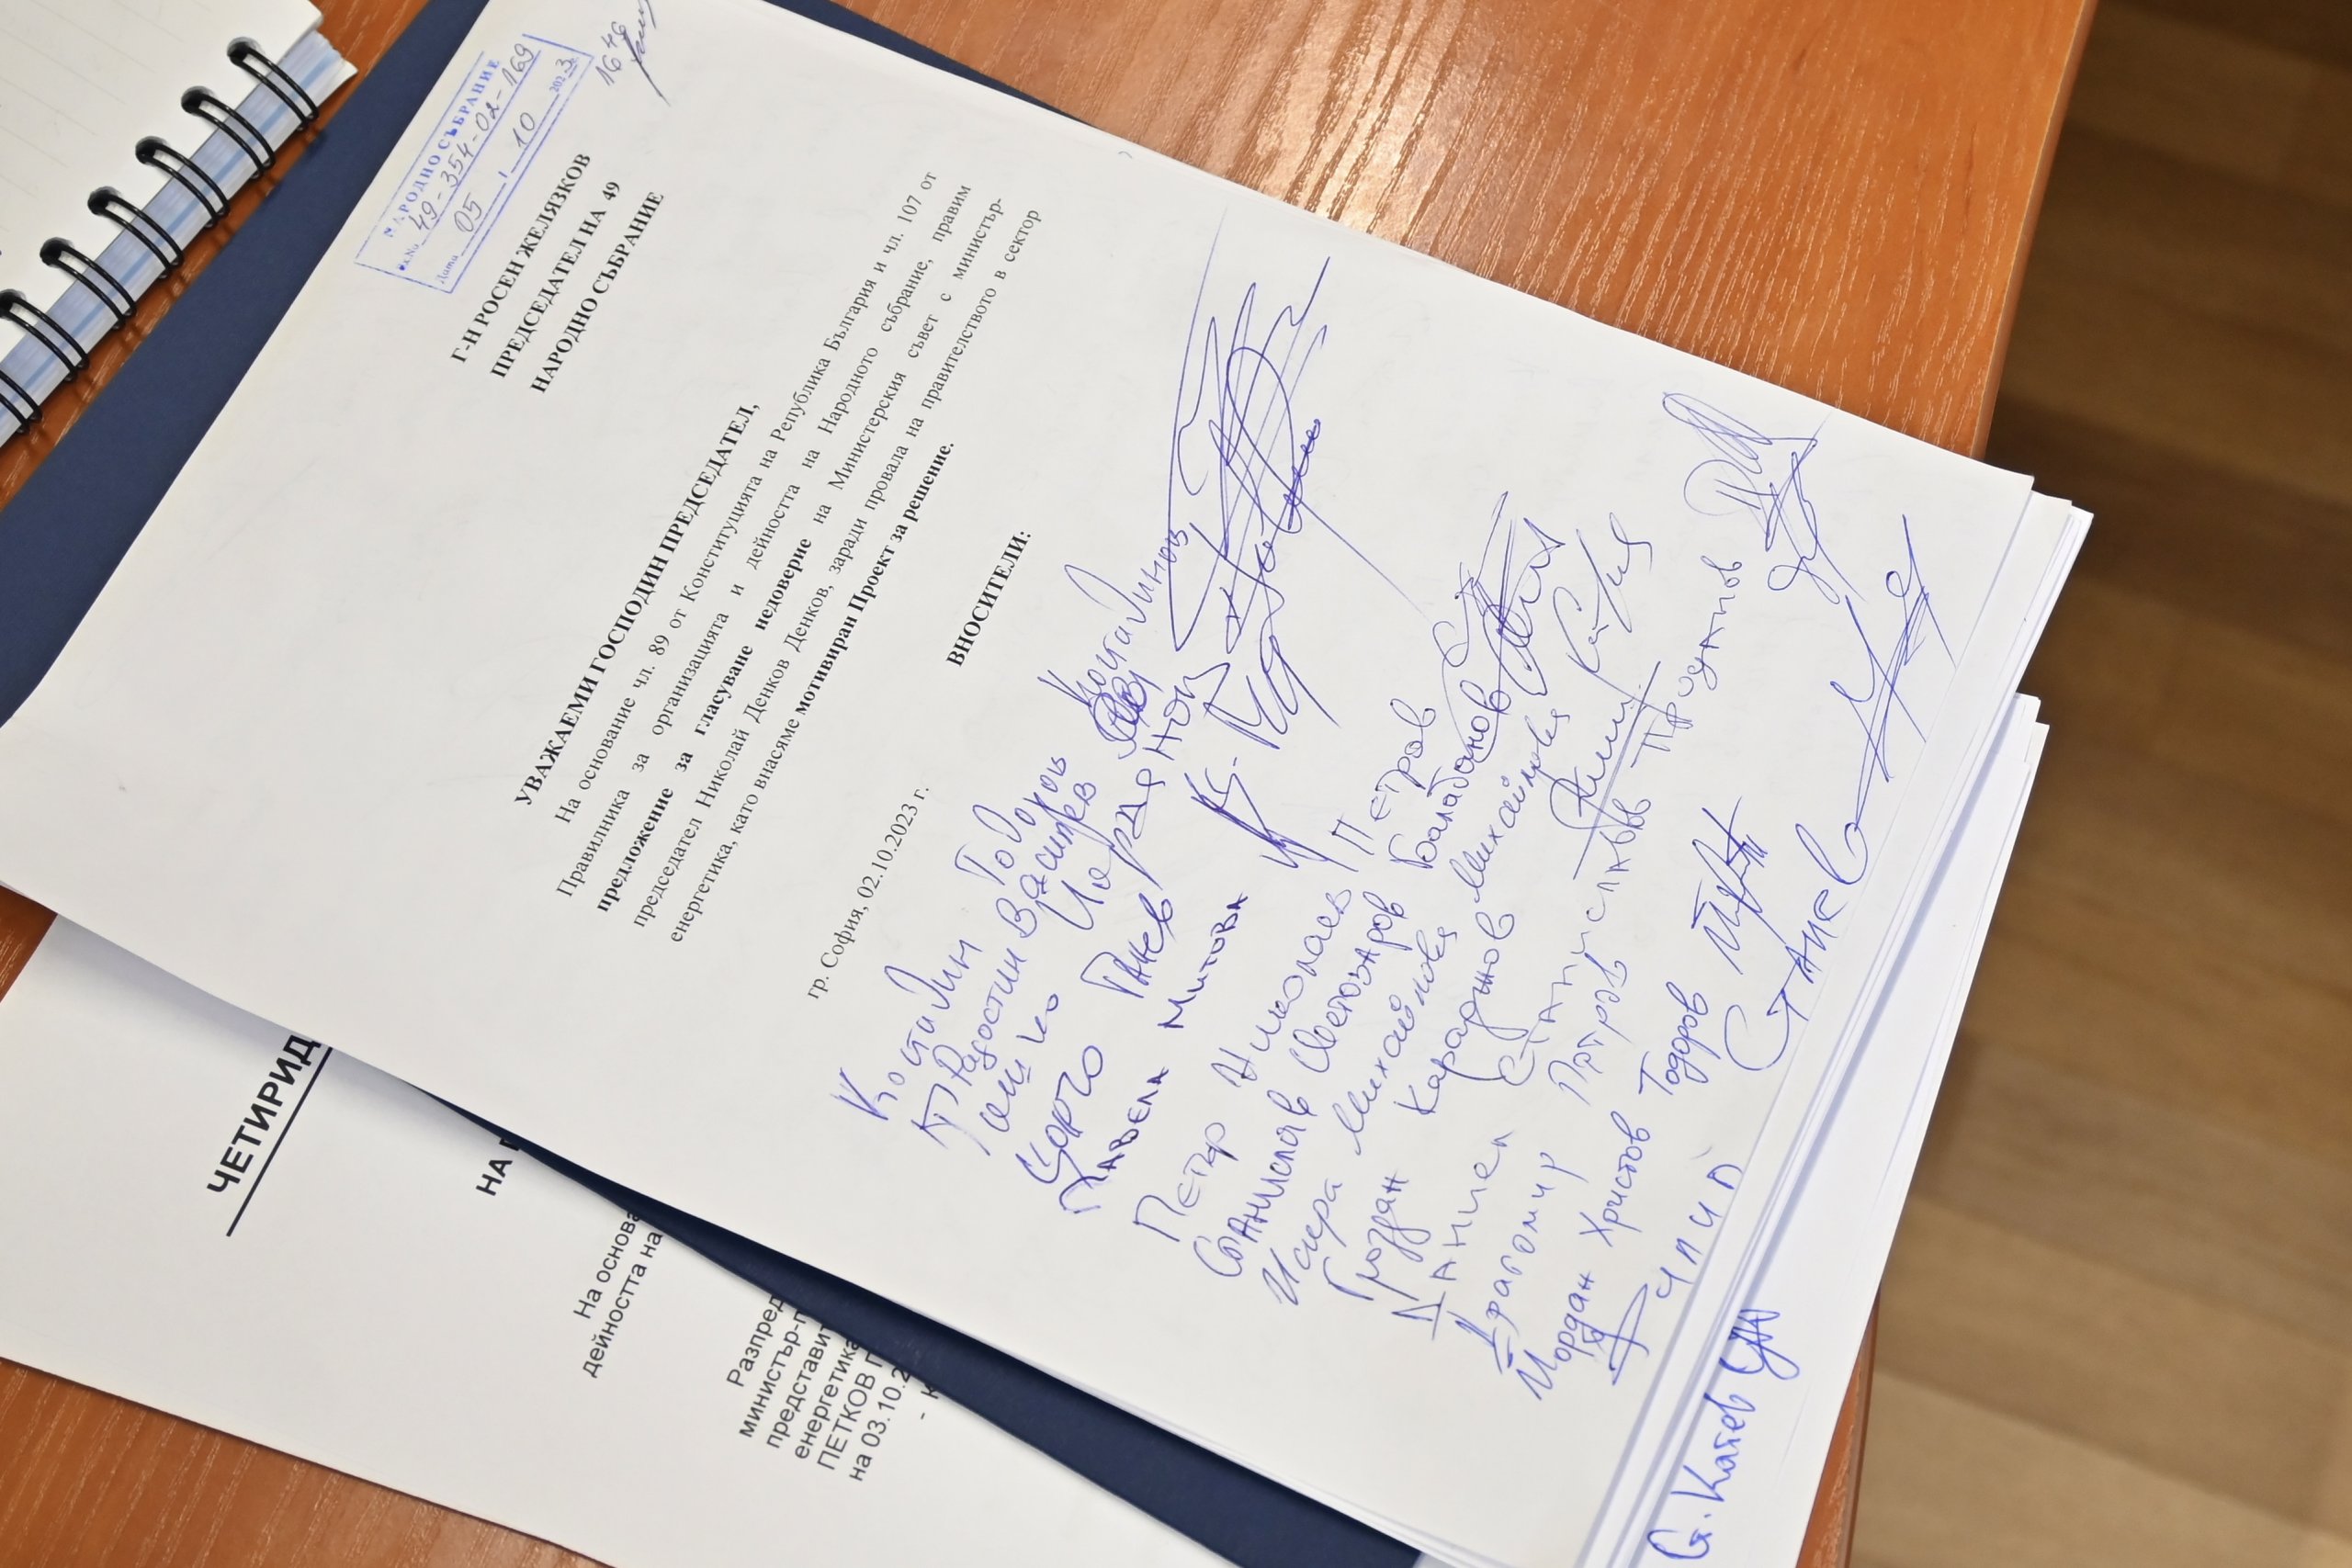 НАРОДНО СЪБРАНИЕ
Вх.№ 49-354-02-169
Дата 05 / 10 2023 г.
16 46
Г-Н РОСЕН ЖЕЛЯЗКОВ
ПРЕДСЕДАТЕЛ НА 49
НАРОДНО СЪБРАНИЕ
УВАЖАЕМИ ГОСПОДИН ПРЕДСЕДАТЕЛ,
На основание чл. 89 от Конституцията на Република България и чл. 107 от
Правилника за организацията и дейността на Народното събрание, правим
предложение за гласуване недоверие на Министерския съвет с министър-
председател Николай Денков Денков, заради провала на правителството в сектор
енергетика, като внасяме мотивиран Проект за решение.
гр. София, 02.10.2023 г.
ВНОСИТЕЛИ:
Костадин Тодоров Костадинов
Радостин Василев
Цончо Ганев
Павела Митова
Петър Николаев Петров
Станислав Светозаров Балабанов
Искра Михайлова Михайлова
Гроздан Караджов
Даниел
Драгомир Петров
Йордан Христов Тодоров
Станев
Ст. Колев
ЧЕТИРИД
НА
На основа
дейността на
Разпред
министър-п
представит
енергетика
ПЕТКОВ П
на 03.10.2
- К